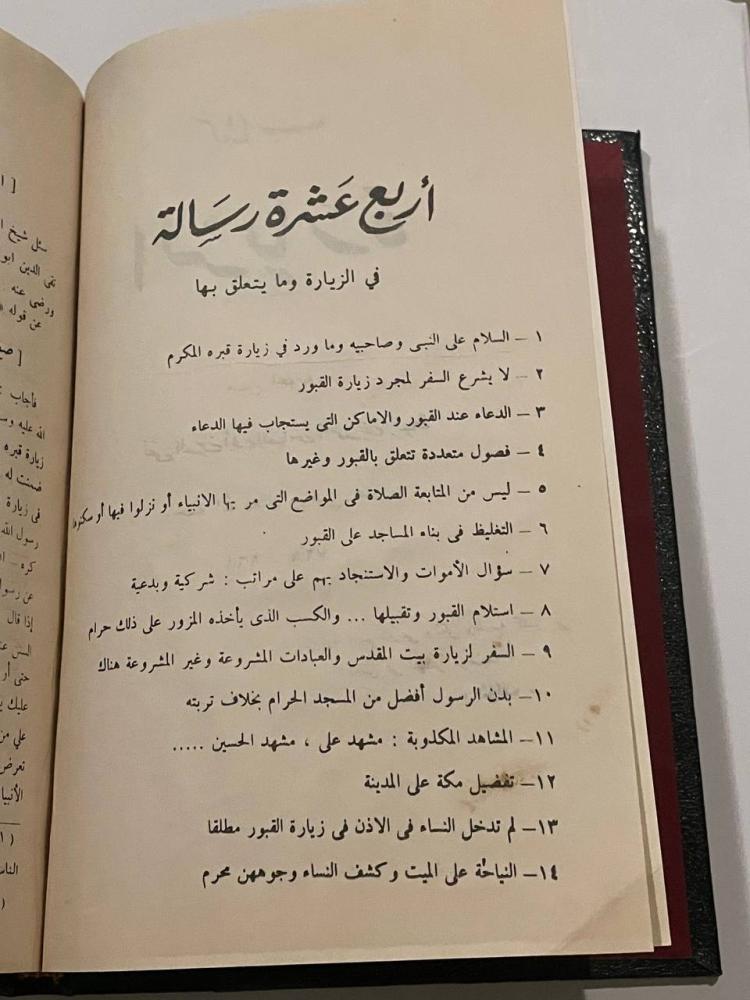 أربع عَشرة رسَالة
في الزيارة وما يتعلق بها
١ – السلام على النبى وصاحبيه وما ورد في زيارة قبره المكرم
٢ – لا يشرع السفر لمجرد زيارة القبور
٣ – الدعاء عند القبور والاماكن التى يستجاب فيها الدعاء
٤ – فصول متعددة تتعلق بالقبور وغيرها
٥ – ليس من المتابعة الصلاة فى المواضع التى مر بها الانبياء أو نزلوا فيها أو سكنوها
٦ – التغليظ فى بناء المساجد على القبور
٧ – سؤال الأموات والاستنجاد بهم على مراتب : شركية وبدعية
٨ – استلام القبور وتقبيلها ... والكسب الذى يأخذه المزور على ذلك حرام
٩ – السفر لزيارة بيت المقدس والعبادات المشروعة وغير المشروعة هناك
١٠– بدن الرسول أفضل من المسجد الحرام بخلاف تربته
١١– المشاهد المكذوبة : مشهد على ، مشهد الحسين .....
١٢– تفضيل مكة على المدينة
١٣– لم تدخل النساء فى الاذن فى زيارة القبور مطلقا
١٤– النياحة على الميت وكشف النساء وجوههن محرم
سئل شيخ
تقى الدين ابو
ورضى عنه
عن قوله
فأجاب
الله عليه وسـ
زيارة قبره
ضمنت له
فى زيارة
رسول الله
كره –
عن رسو
إذا قال
السن عن
حتى أر
عليك
علي من
تعرض
الأنبيا
الناس